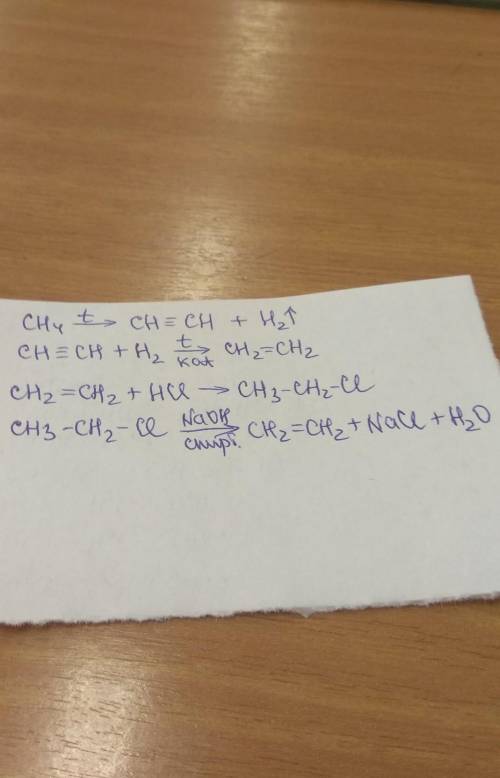 CH₄ →t CH≡CH + H₂↑
CH≡CH + H₂ →t kat CH₂=CH₂
CH₂=CH₂ + HCl → CH₃-CH₂-Cl
CH3-CH₂-Cl →NaOH спирт. CH₂=CH₂ + NaCl + H₂O